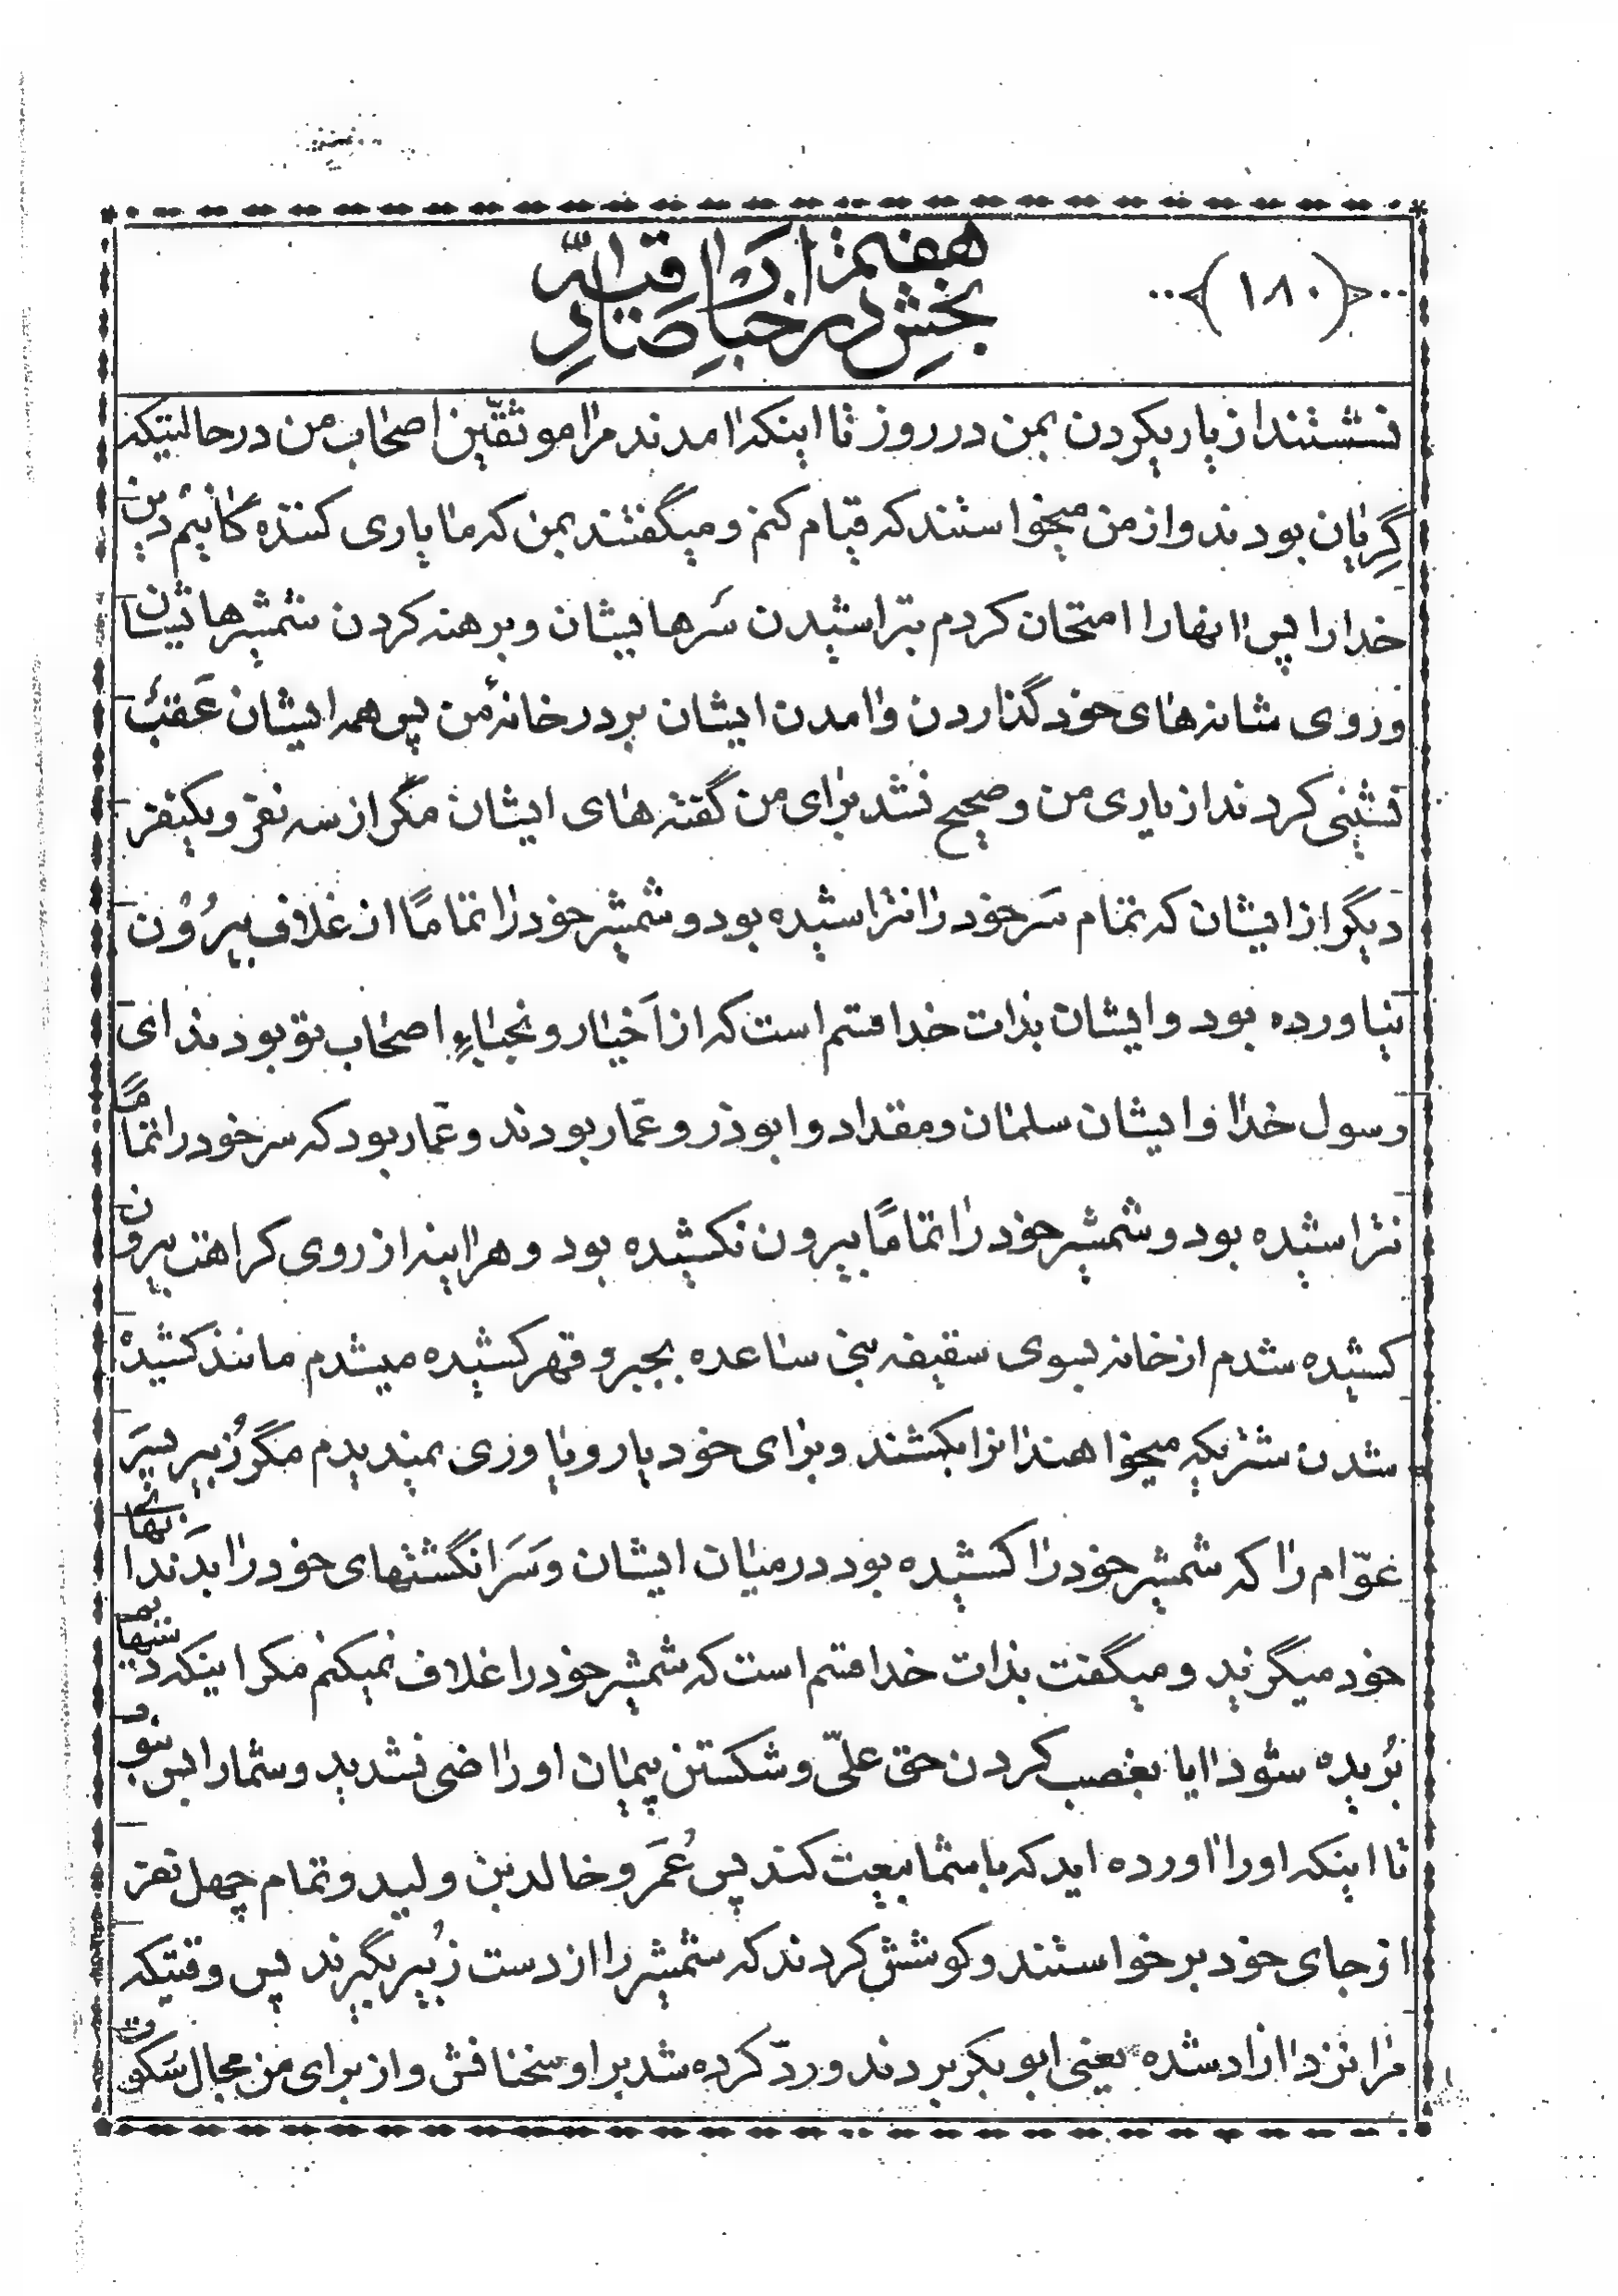 (۱۸۰)
بخش هفتم در اخبار صادقیه
نشستند از یاری کردن بمن در روز تا اینکه امدند مرا موثقین اصحاب من در حالتیکه
گِریان بودند و از من میخواستند که قیام کنم و میگفتند بمن که ما یاری کننده گانیم دین
خدا را پس انها را امتحان کردم بتراشیدن سَرهایشان و برهنه کردن شمشیرهایشان
و روی شانه های خود گذاردن و امدن ایشان بر در خانهٔ من پس همه ایشان عَقَب
نشینی کردند از یاری من و صحیح نشد برای من گفته های ایشان مگر از سه نفر و یکنفر
دیگر از ایشان که تمام سَر خود را نتراشیده بود و شمشیر خود را تماماً از غلاف بیرُون
نیاورده بود و ایشان بذات خدا قسم است که از اَخیار و نجباءِ اصحاب تو بودند ای
رسول خدا و ایشان سلمان و مقداد و ابوذر و عمّار بودند و عمّار بود که سر خود را تماماً
نتراشیده بود و شمشیر خود را تماماً بیرون نکشیده بود و هراینه از روی کراهت بیرون
کشیده شدم از خانه بسوی سقیفه بنی ساعده بجبر و قهر کشیده میشدم مانند کشیده
شدن شتریکه میخواهند انرا بکشند و برای خود یار و یاوری نمیدیدم مگر زُبیر پسَر
عوّام را که شمشیر خود را کشیده بود در میان ایشان و سَر انگشتهای خود را بدَندانهای
خود میگزید و میگفت بذات خدا قسم است که شمشیر خود را غلاف نمیکنم مگر اینکه دستهایم
بُریده شود ایا بغصب کردن حق علیّ و شکستن پیمان او راضی نشدید و شما را بس نبود
تا اینکه او را اورده اید که با شما بیعت کند پس عُمَر و خالد بن ولید و تمام چهل نفر
از جای خود برخواستند و کوشش کردند که شمشیر را از دست زُبیر بگیرند پس وقتیکه
مرا نزد ازاد شده یعنی ابوبکر بردند و ردّ کرده شد بر او سخنانش و از برای من مجال سَکوت